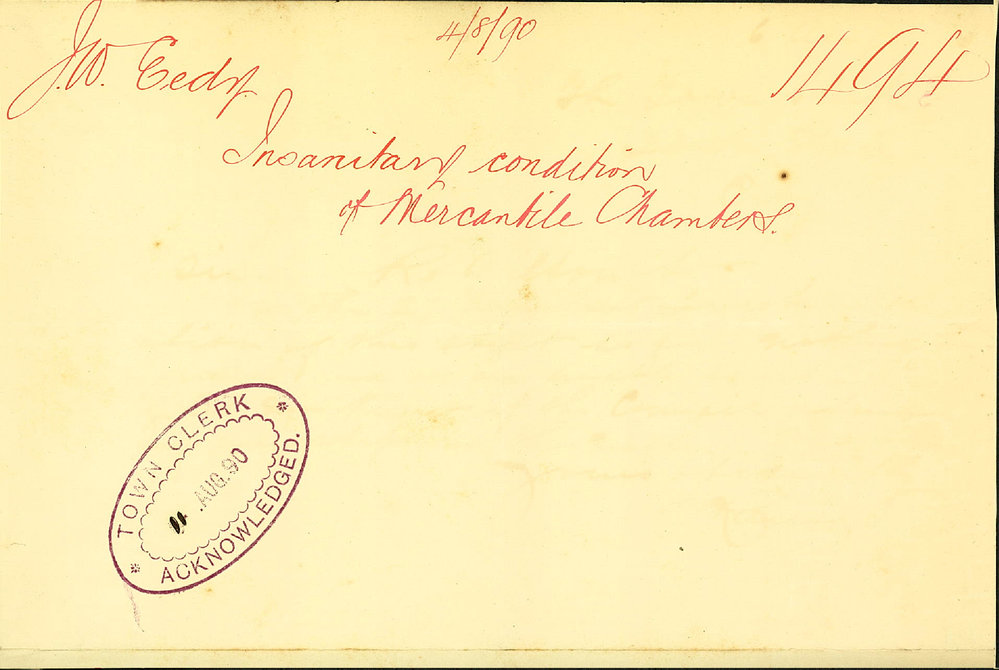 4/8/90
J.W. Eedy.
1494
Insanitary condition
of Mercantile Chambers.
TOWN CLERK
AUG.90
ACKNOWLEDGED.